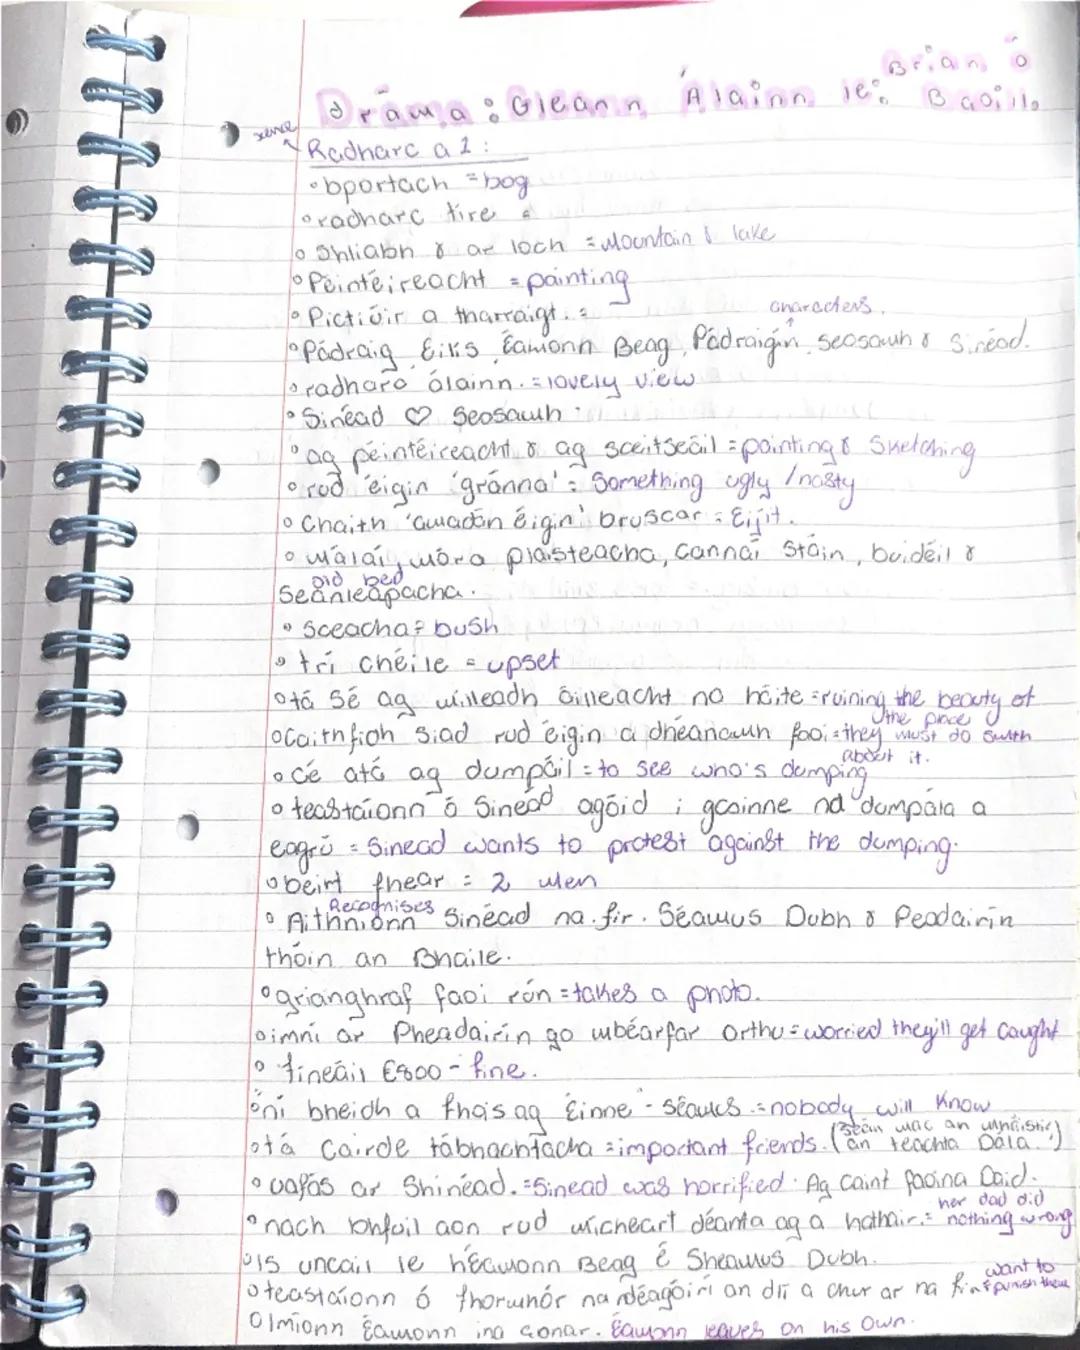 Dráma: Gleann Álainn le: Brian Ó Baoill.
scene
Radharc a 1:
•bportach = bog
•radharc tíre =
•Shliabh & ar loch = Mountain & lake
•Péintéireacht = painting
•Pictiúir a tharraigt. =
characters.
•Pádraig Eilís Éamonn Beag, Pádraigín, Seosamh & Sinéad.
•radharc álainn. = lovely view
•Sinéad ♡ Seosamh
•ag péintéireacht & ag sceitseáil = painting & Sketching
•rud éigin 'gránna' = Something ugly / nasty
•Chaith 'amadán éigin' bruscar = Eijit.
•málaí móra plaisteacha, cannaí stáin, buidéil &
old bed
Seanleapacha.
•Sceacha = bush
•trí chéile = upset
•tá sé ag milleadh áilleacht na háite = ruining the beauty of
the place
•Caithfidh siad rud éigin a dhéanamh faoi = they must do smth
about it.
•Cé atá ag dumpáil = to see who's dumping
•teastaíonn ó Sinéad agóid i gcoinne na dumpála a
eagrú = Sinead wants to protest against the dumping.
•beirt fhear = 2 men
Recognises
•Aithníonn Sinéad na fir. Séamus Dubh & Peadairín
thóin an Bhaile.
•grianghraf faoi rún = takes a photo.
•imní ar Pheadairín go mbéarfar orthu = worried they'll get caught
•fíneáil €800 - fine.
•ní bheidh a fhois ag éinne - Séamus. = nobody will know
•tá cairde tábhachtacha = important friends. (Seán mac an mháistir)
(an teachta Dála.)
•uafás ar Shinéad. = Sinead was horrified. Ag caint faoina Daid.
her dad did
•nach bhfuil aon rud mícheart déanta ag a hathair. = nothing wrong
•Is uncail le hÉamonn Beag é Sheamus Dubh.
want to
•teastaíonn ó fhormhór na ndéagóirí an dlí a chur ar na fir = punish them
•Imíonn Éamonn ina aonar. Éamonn leaves on his own.